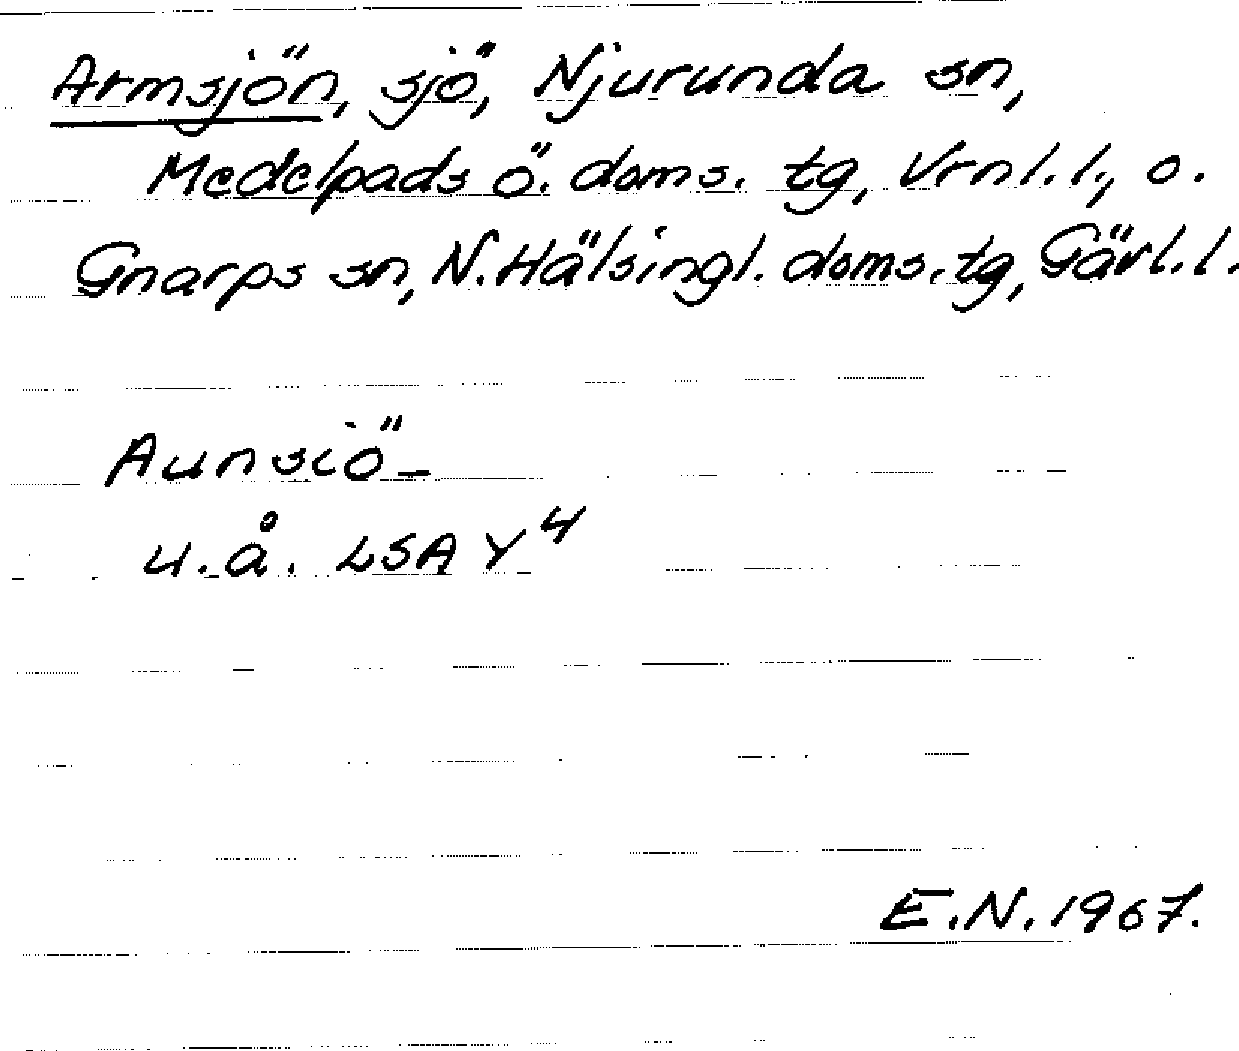 Armsjön, sjö, Njurunda sn,
Medelpads ö. doms. tg, Vrnl. l., o.
Gnarps sn, N. Hälsingl. doms. tg, Gävl. l.
Aunsiö-
u.å. LSA Y4
E.N. 1967.